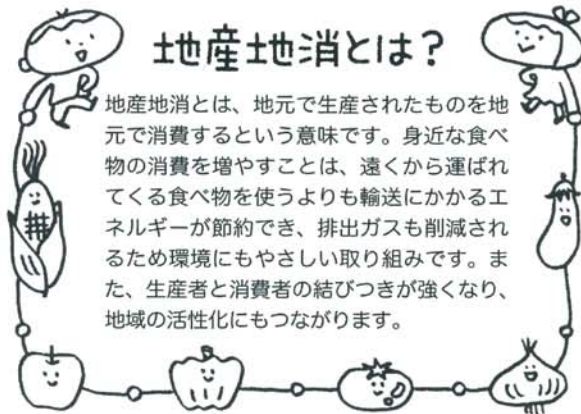 地産地消とは？
地産地消とは、地元で生産されたものを地
元で消費するという意味です。身近な食べ
物の消費を増やすことは、遠くから運ばれ
てくる食べ物を使うよりも輸送にかかるエ
ネルギーが節約でき、排出ガスも削減され
るため環境にもやさしい取り組みです。ま
た、生産者と消費者の結びつきが強くなり、
地域の活性化にもつながります。